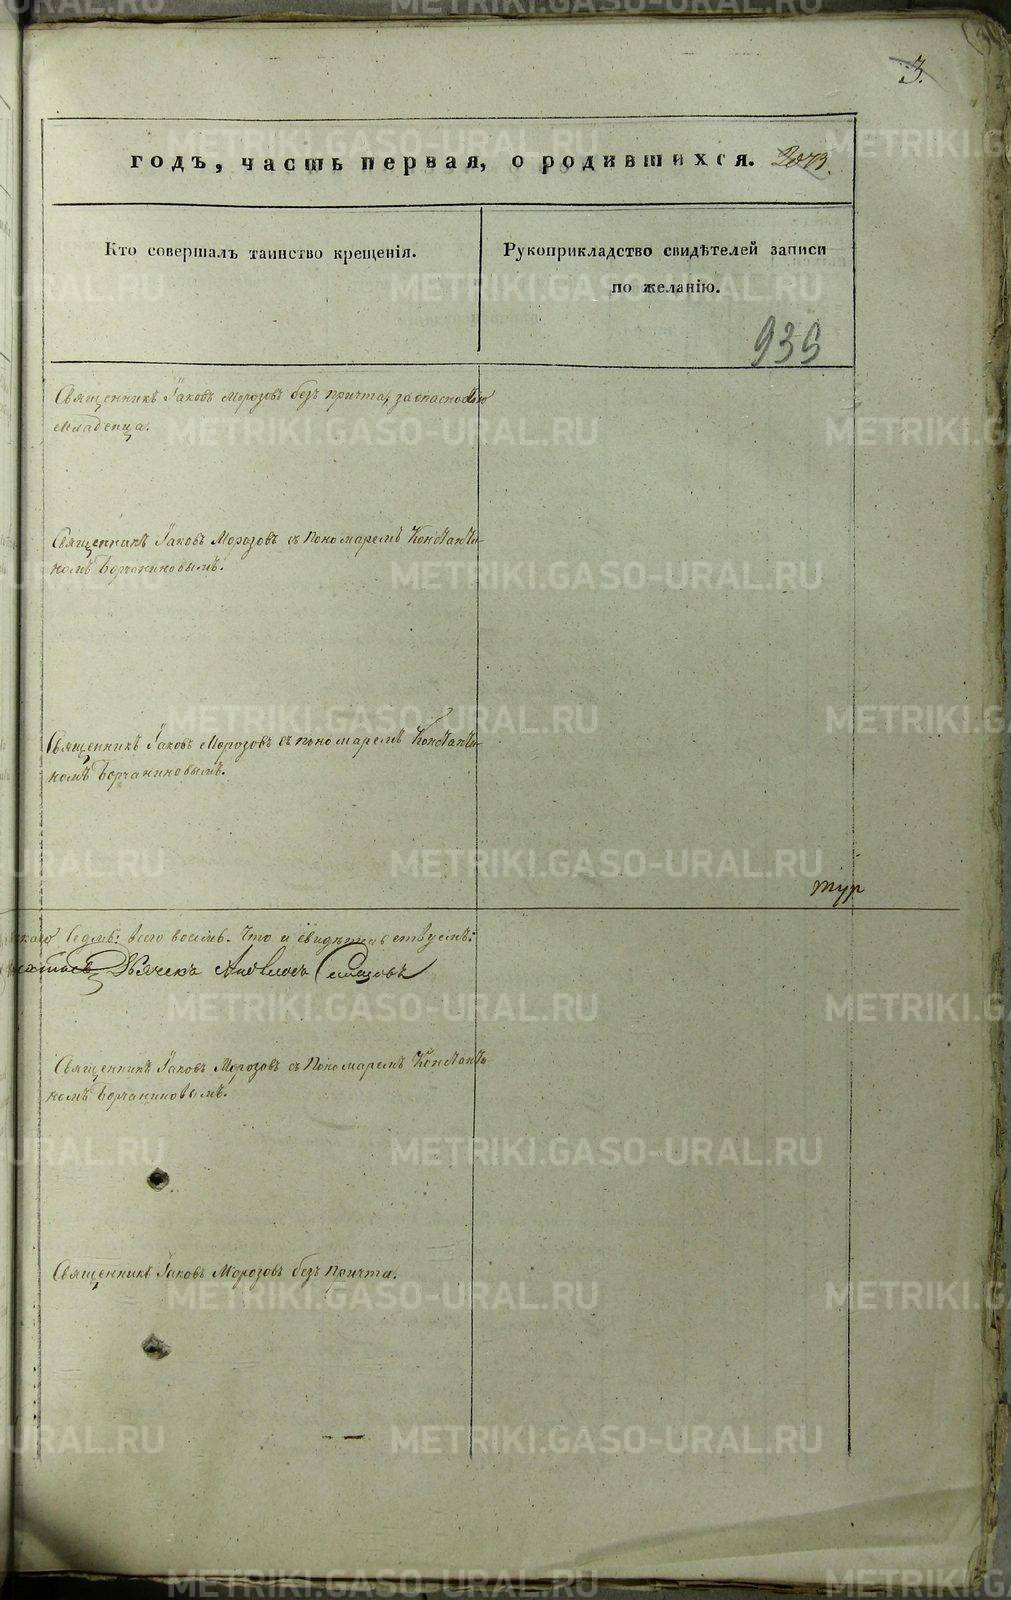 3.
годъ, часть первая, о родившихся. 2073.
Кто совершалъ таинство крещенія.
Рукоприкладство свидѣтелей записи
по желанію.
935
Священникъ Іаковъ Морозовъ безъ причта, за опасностію
младенца.
Священникъ Іаковъ Морозовъ съ Пономаремъ Константи-
номъ Борчаниновымъ.
Священникъ Іаковъ Морозовъ съ пономаремъ Константи-
номъ Борчаниновымъ.
тур
седмь: всего восемь. Что и свидѣтельствуемъ:
Дьячекъ
Священникъ Іаковъ Морозовъ съ Пономаремъ Константи-
номъ Борчаниновымъ.
Священникъ Іаковъ Морозовъ безъ Причта.
METRIKI.GASO-URAL.RU